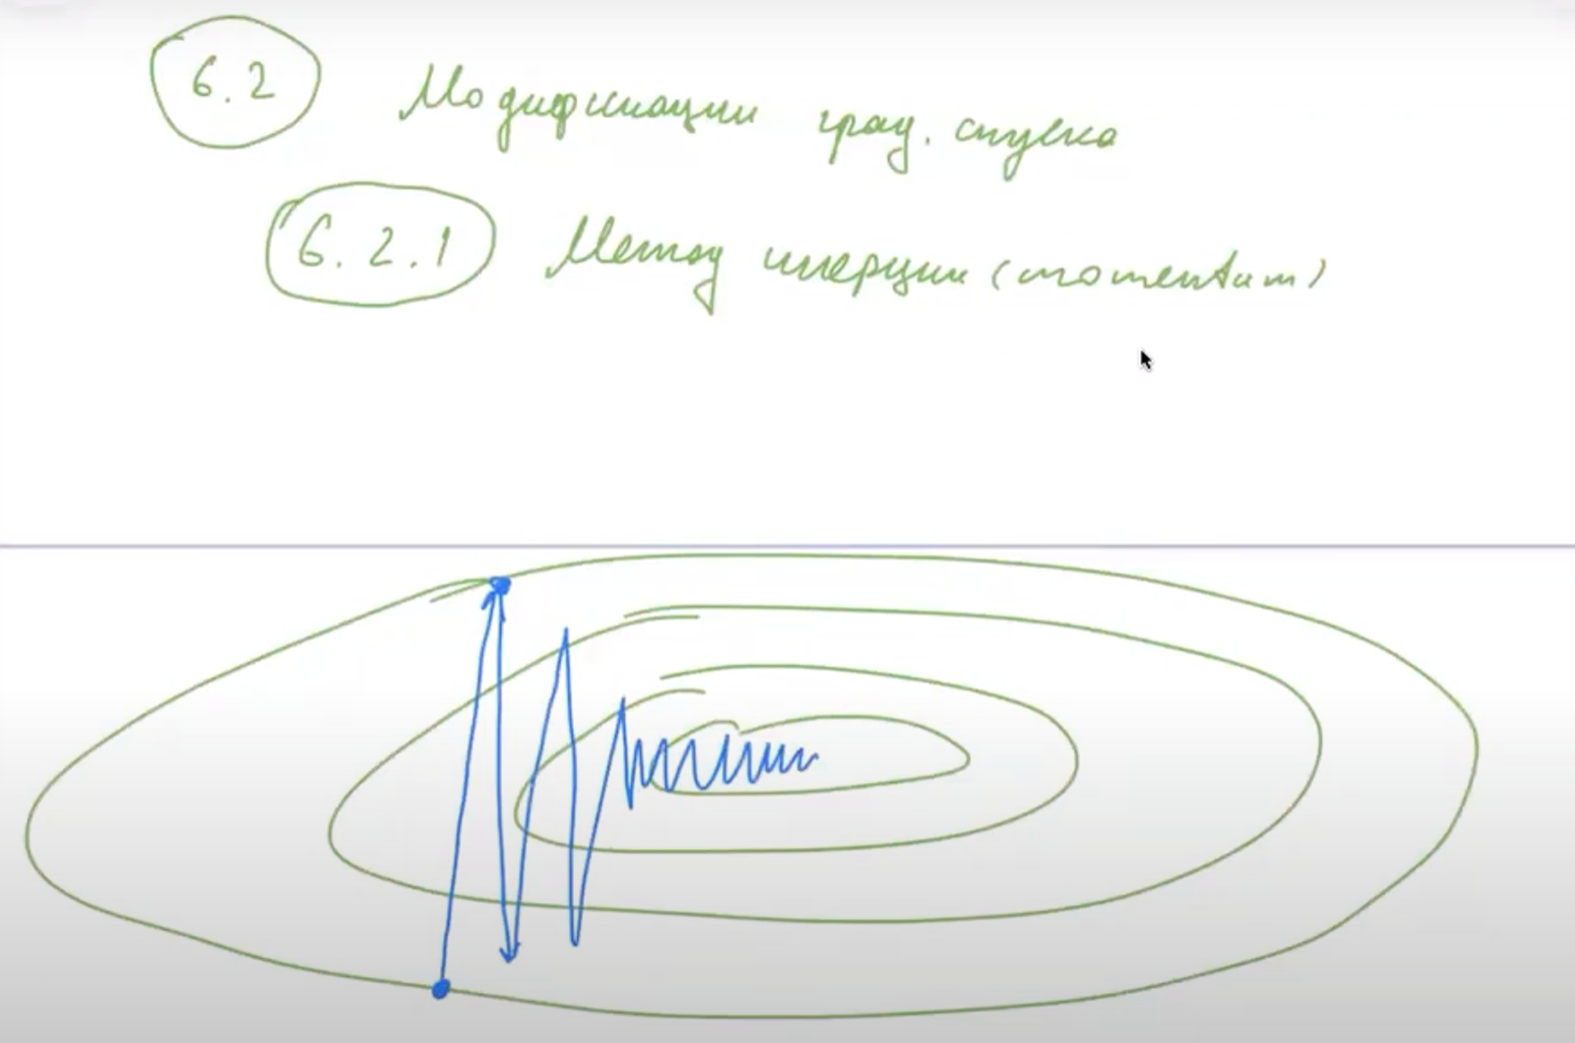 6.2 Модификации град. спуска
6.2.1 Метод инерции (momentum)